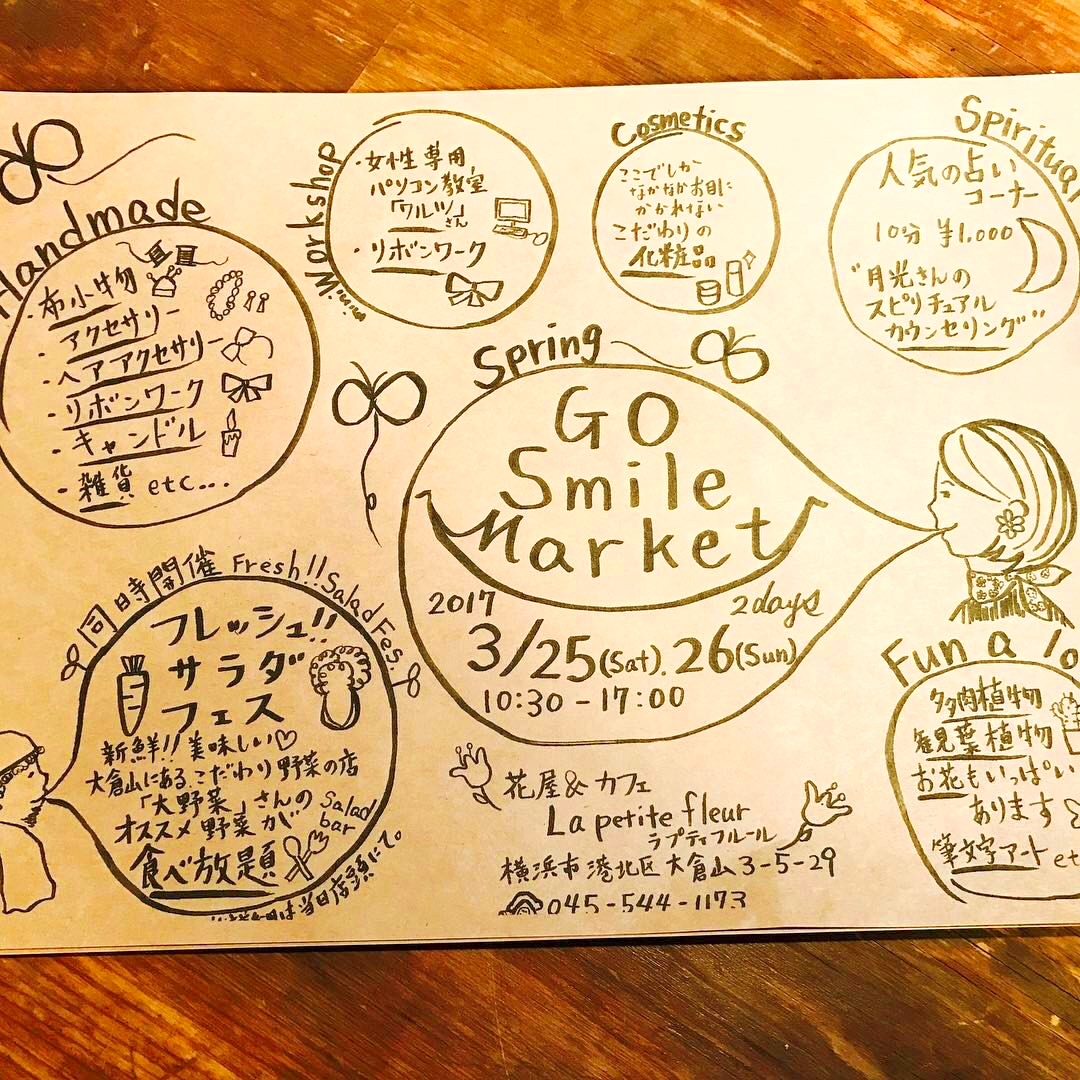 Handmade
・布小物
・アクセサリー
・ヘアアクセサリー
・リボンワーク
・キャンドル
・雑貨 etc...
mini Workshop
・女性専用
パソコン教室
「ワルツ」さん
・リボンワーク
Cosmetics
ここでしか
なかなかお目に
かかれない
こだわりの
化粧品
Spiritual
人気の占い
コーナー
10分 ¥1,000
"月光さんの
スピリチュアル
カウンセリング"
Spring
GO
Smile
Market
2017 2days
3/25(Sat).26(Sun)
10:30-17:00
同時開催 Fresh!!Salad Fes.
フレッシュ!!
サラダ
フェス
新鮮!!美味しい♡
大倉山にあるこだわり野菜の店
「大野菜」さんの
オススメ野菜が
Salad
bar
食べ放題
は当日店頭にて。
花屋&カフェ
La petite fleur
ラプティフルール
横浜市港北区大倉山3-5-29
045-544-1173
Fun a lo
多肉植物
観葉植物
お花もいっぱい
あります
筆文字アート et